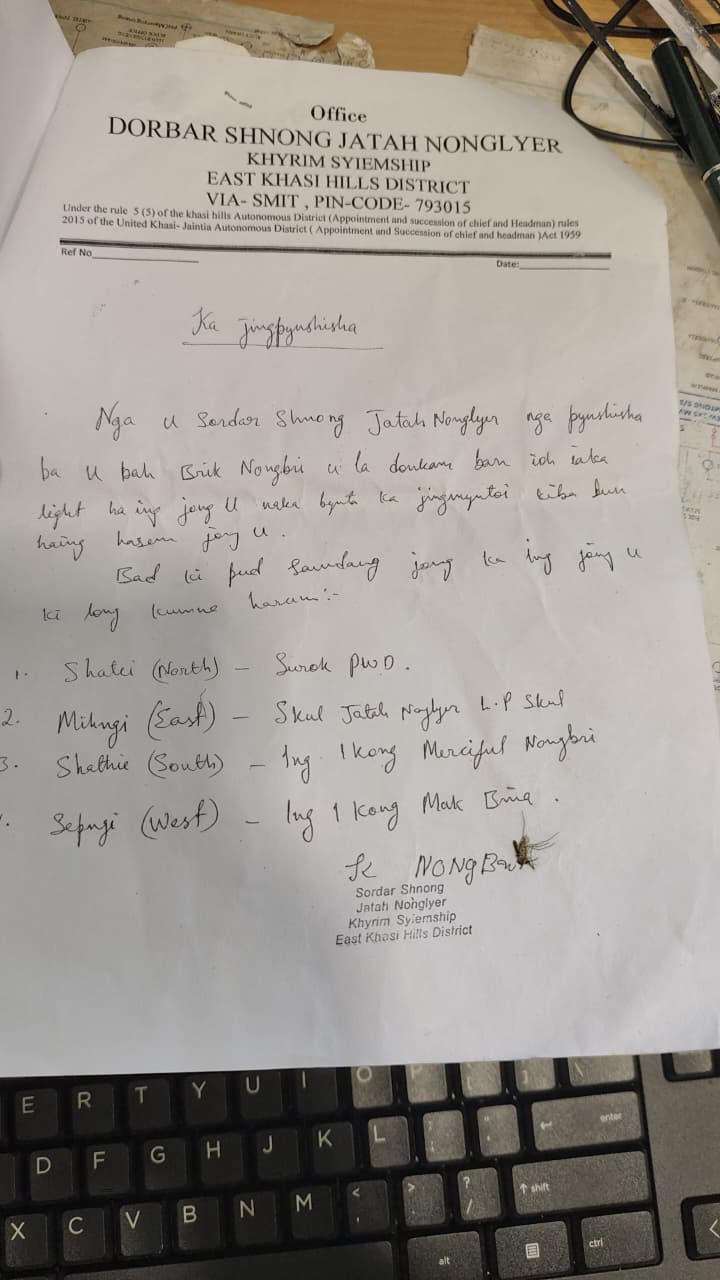 Office
DORBAR SHNONG JATAH NONGLYER
KHYRIM SYIEMSHIP
EAST KHASI HILLS DISTRICT
VIA- SMIT , PIN-CODE- 793015
Under the rule 5 (5) of the khasi hills Autonomous District (Appointment and succession of chief and Headman) rules
2015 of the United Khasi- Jaintia Autonomous District ( Appointment and Succession of chief and headman )Act 1959
Ref No
Date:
Ka jingpynshisha
Nga u Sordar Shnong Jatah Nonglyer nga pynshisha
ba u bah Brik Nongbri u la donkam ban ioh iaka
light ha ing jong U naka bynta ka jingmyntoi kiba bun
haing hasem jong u .
Bad ki pud sawdang jong ka ing jong u
ki long kumne harum:-
1. Shatei (North) - Surok PWD .
2. Mihngi (East) - Skul Jatah Noglyer L.P Skul
3. Shathie (South) - Ing 1 Kong Merciful Nongbri
. Sepngi (West) - Ing 1 Kong Mak Bina .
Sordar Shnong
Jatah Nonglyer
Khyrim Syiemship
East Khasi Hills District
E R T Y U I O P
D F G H J K L
X C V B N M
enter
shift
alt
ctrl